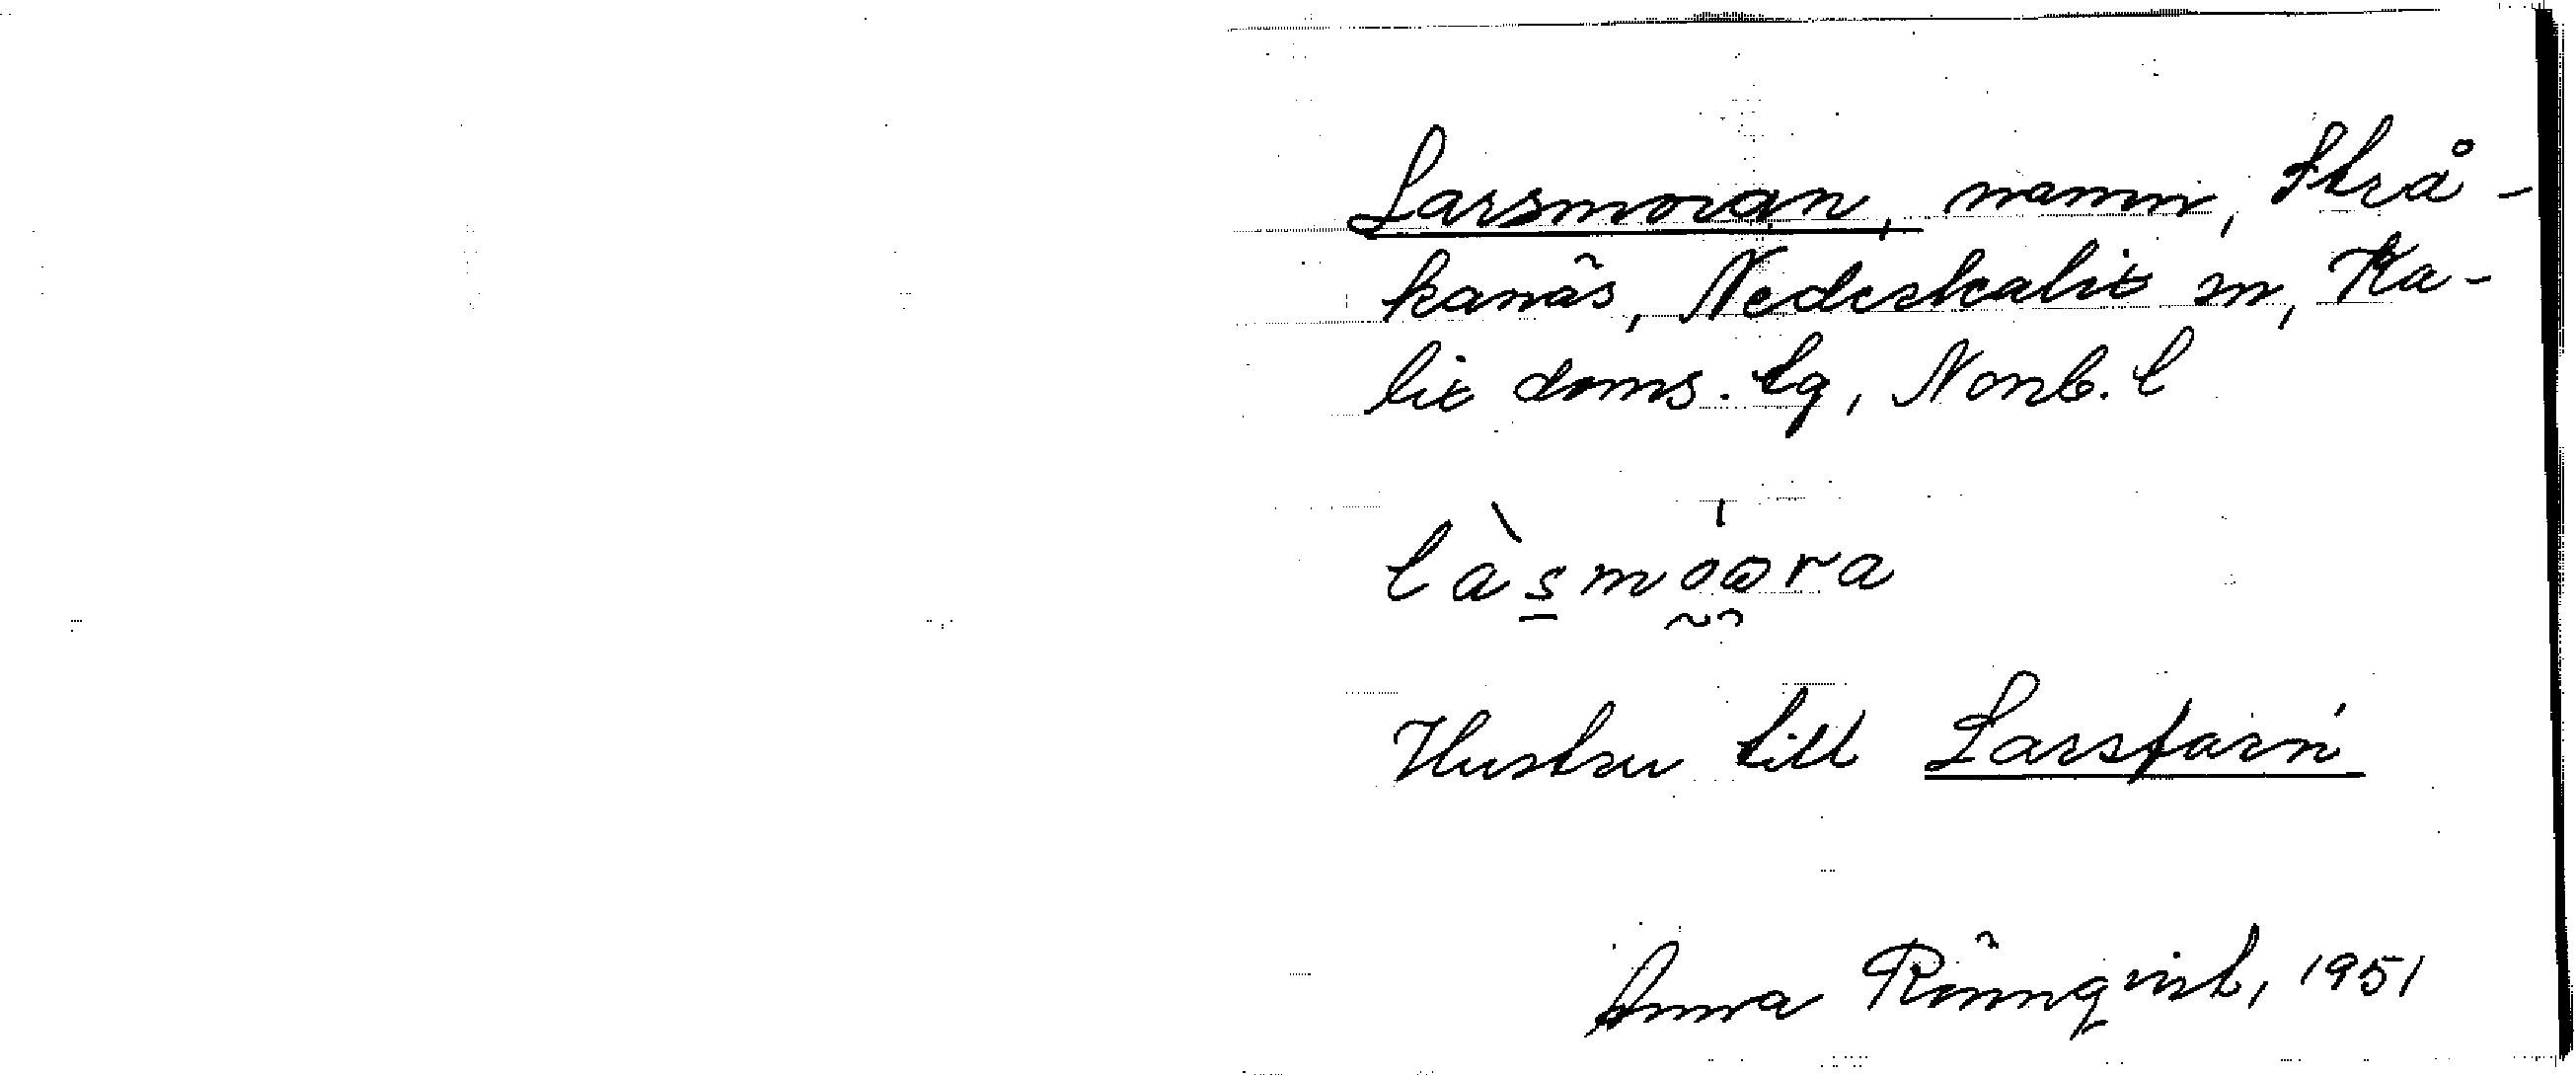 Larsmoran, namn, Strå-
kanäs, Nederkalix sn, Ka-
lix doms. lg, Norrb. l
Hustru till Larsfarn
Anna Rönnqvist, 1951